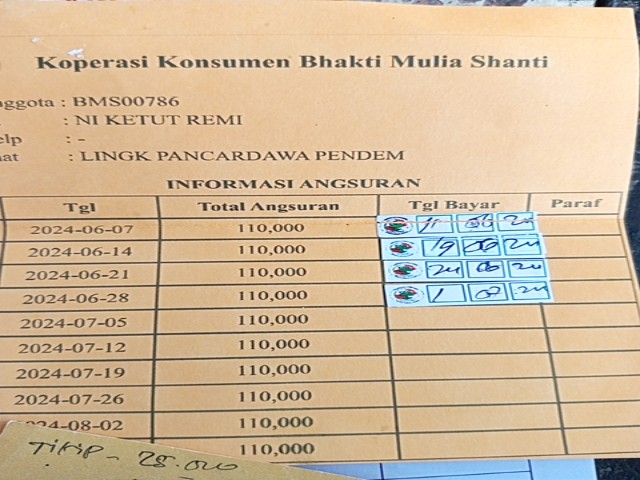 Koperasi Konsumen Bhakti Mulia Shanti
nggota : BMS00786
: NI KETUT REMI
elp : -
nat : LINGK PANCARDAWA PENDEM
INFORMASI ANGSURAN
Tgl Total Angsuran Tgl Bayar Paraf
2024-06-07 110,000 11 06 24
2024-06-14 110,000 19 06 24
2024-06-21 110,000 24 06 24
2024-06-28 110,000 1 07 24
2024-07-05 110,000
2024-07-12 110,000
2024-07-19 110,000
2024-07-26 110,000
24-08-02 110,000
110,000
- 25.000